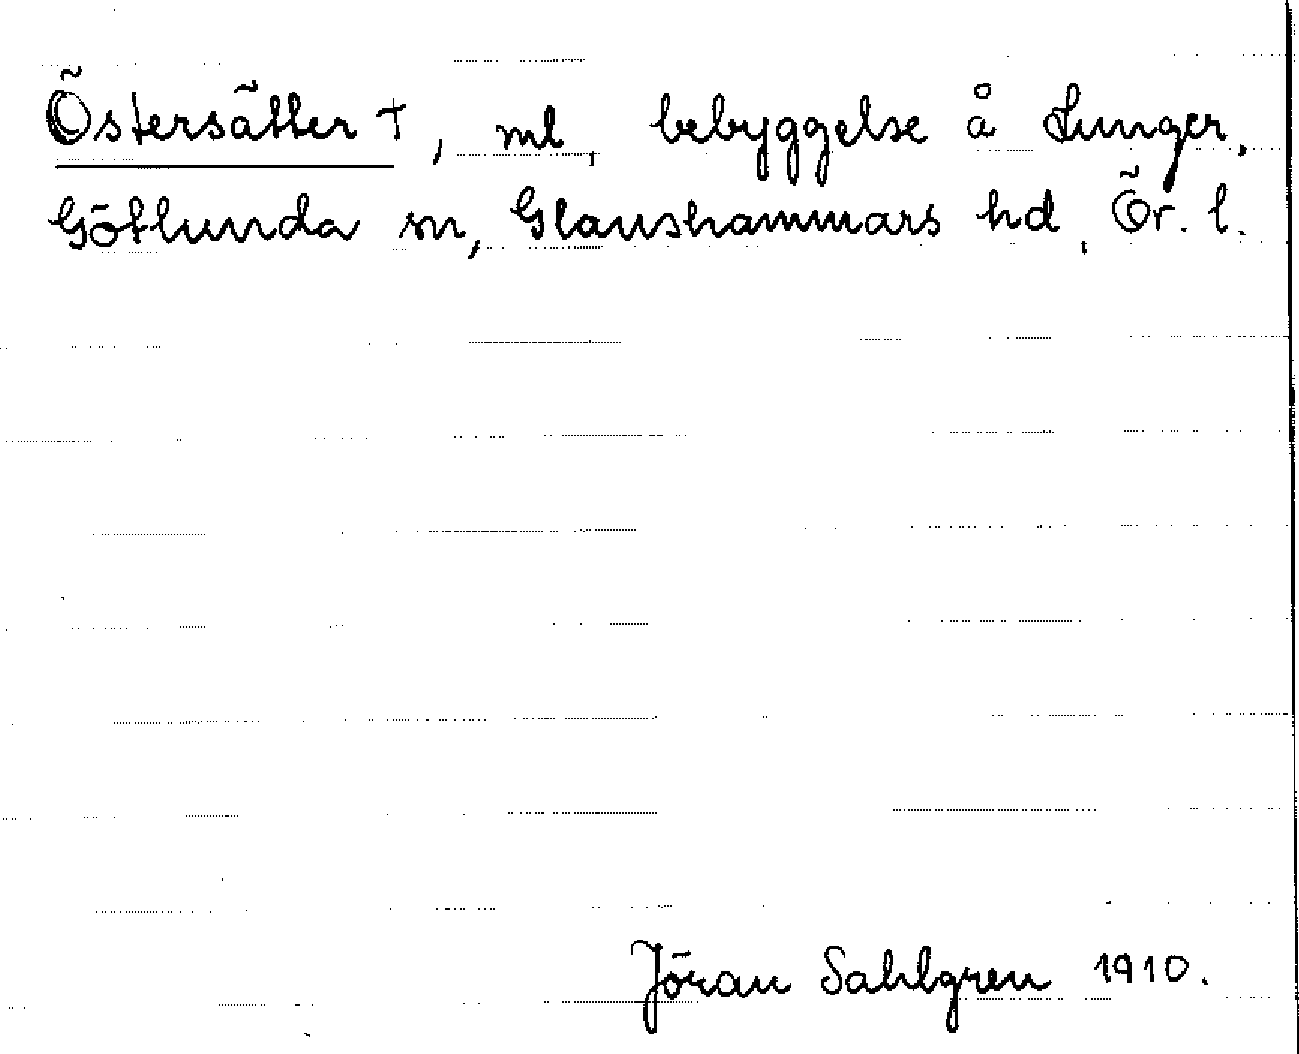 Östersätter †, ml, bebyggelse å Lunger,
Götlunda sn, Glanshammars hd, Ör. l.
Jöran Sahlgren 1910.